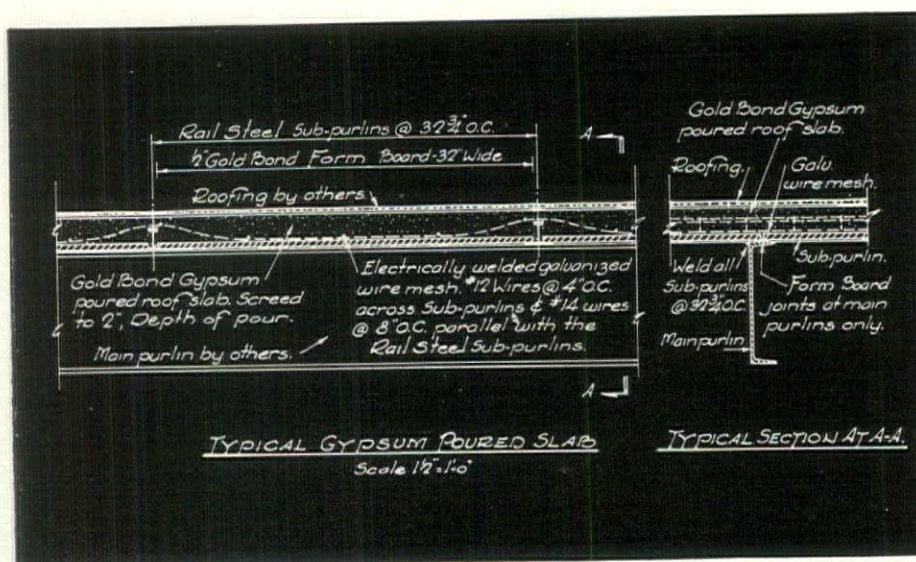 Rail Steel Sub-purlins @ 32¾" O.C.
½" Gold Bond Form Board-32" Wide
Roofing by others
A
Gold Bond Gypsum
poured roof slab. Screed
to 2", Depth of pour.
Main purlin by others.
Electrically welded galvanized
wire mesh. #12 Wires @ 4" O.C.
across Sub-purlins & #14 wires
@ 8" O.C. parallel with the
Rail Steel Sub-purlins.
A
TYPICAL GYPSUM POURED SLAB
Scale 1½"=1'-0"
Gold Bond Gypsum
poured roof slab.
Roofing.
Galv.
wire mesh.
Weld all
Sub-purlins
@ 32¾" O.C.
Sub-purlin.
Form Board
joints at main
purlins only.
Main purlin
TYPICAL SECTION AT A-A.